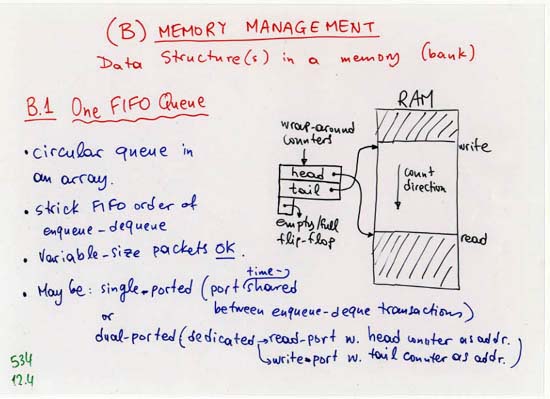 (B) MEMORY MANAGEMENT
Data Structure(s) in a memory (bank)
B.1 One FIFO Queue
• circular queue in
an array.
• strick FIFO order of
enqueue-dequeue
• Variable-size packets OK.
• May be: single-ported (port time-shared
between enqueue-deque transactions)
or
dual-ported (dedicated → read-port w. head counter as addr.
→ write-port w. tail counter as addr.)
wrap-around
counters
head
tail
empty/full
flip-flop
RAM
write
count
direction
read
534
12.4